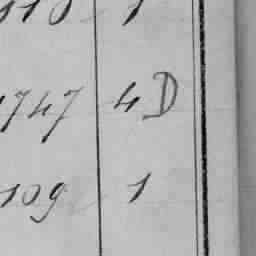 110 1
1747 4D
109 1